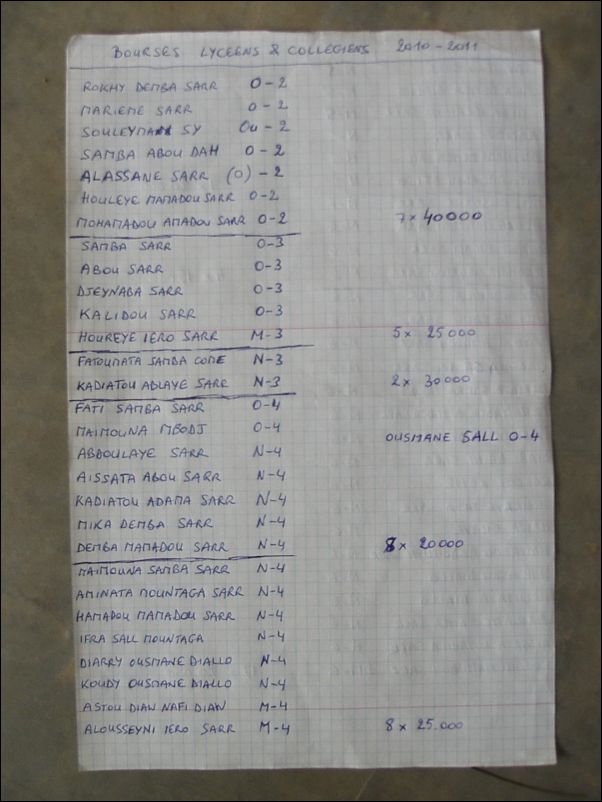 BOURSES LYCEENS & COLLEGIENS 2010-2011
ROKHY DEMBA SARR O-2
MARIEME SARR O-2
SOULEYMAN SY Ou-2
SAMBA ABOU DAH O-2
ALASSANE SARR (O)-2
HOULEYE MAMADOU SARR O-2
MOHAMADOU AMADOU SARR O-2 7 x 40000
SAMBA SARR O-3
ABOU SARR O-3
DJEYNABA SARR O-3
KALIDOU SARR O-3
HOUREYE IERO SARR M-3 5 x 25000
FATOUMATA SAMBA N-3
KADIATOU ABLAYE SARR N-3 2 x 30000
FATI SAMBA SARR O-4
MAIMOUNA MBODJ O-4 OUSMANE SALL O-4
ABDOULAYE SARR N-4
AISSATA ABOU SARR N-4
KADIATOU ADAMA SARR N-4
MIKA DEMBA SARR N-4
DEMBA MAMADOU SARR N-4 8 x 20000
MAIMOUNA SAMBA SARR N-4
AMINATA MOUNTAGA SARR N-4
HAMADOU MAMADOU SARR N-4
IFRA SALL MOUNTAGA N-4
DIARRY OUSMANE DIALLO N-4
KOUDY OUSMANE DIALLO N-4
ASTOU DIAW NAFI DIAW M-4
ALOUSSEYNI IERO SARR M-4 8 x 25.000